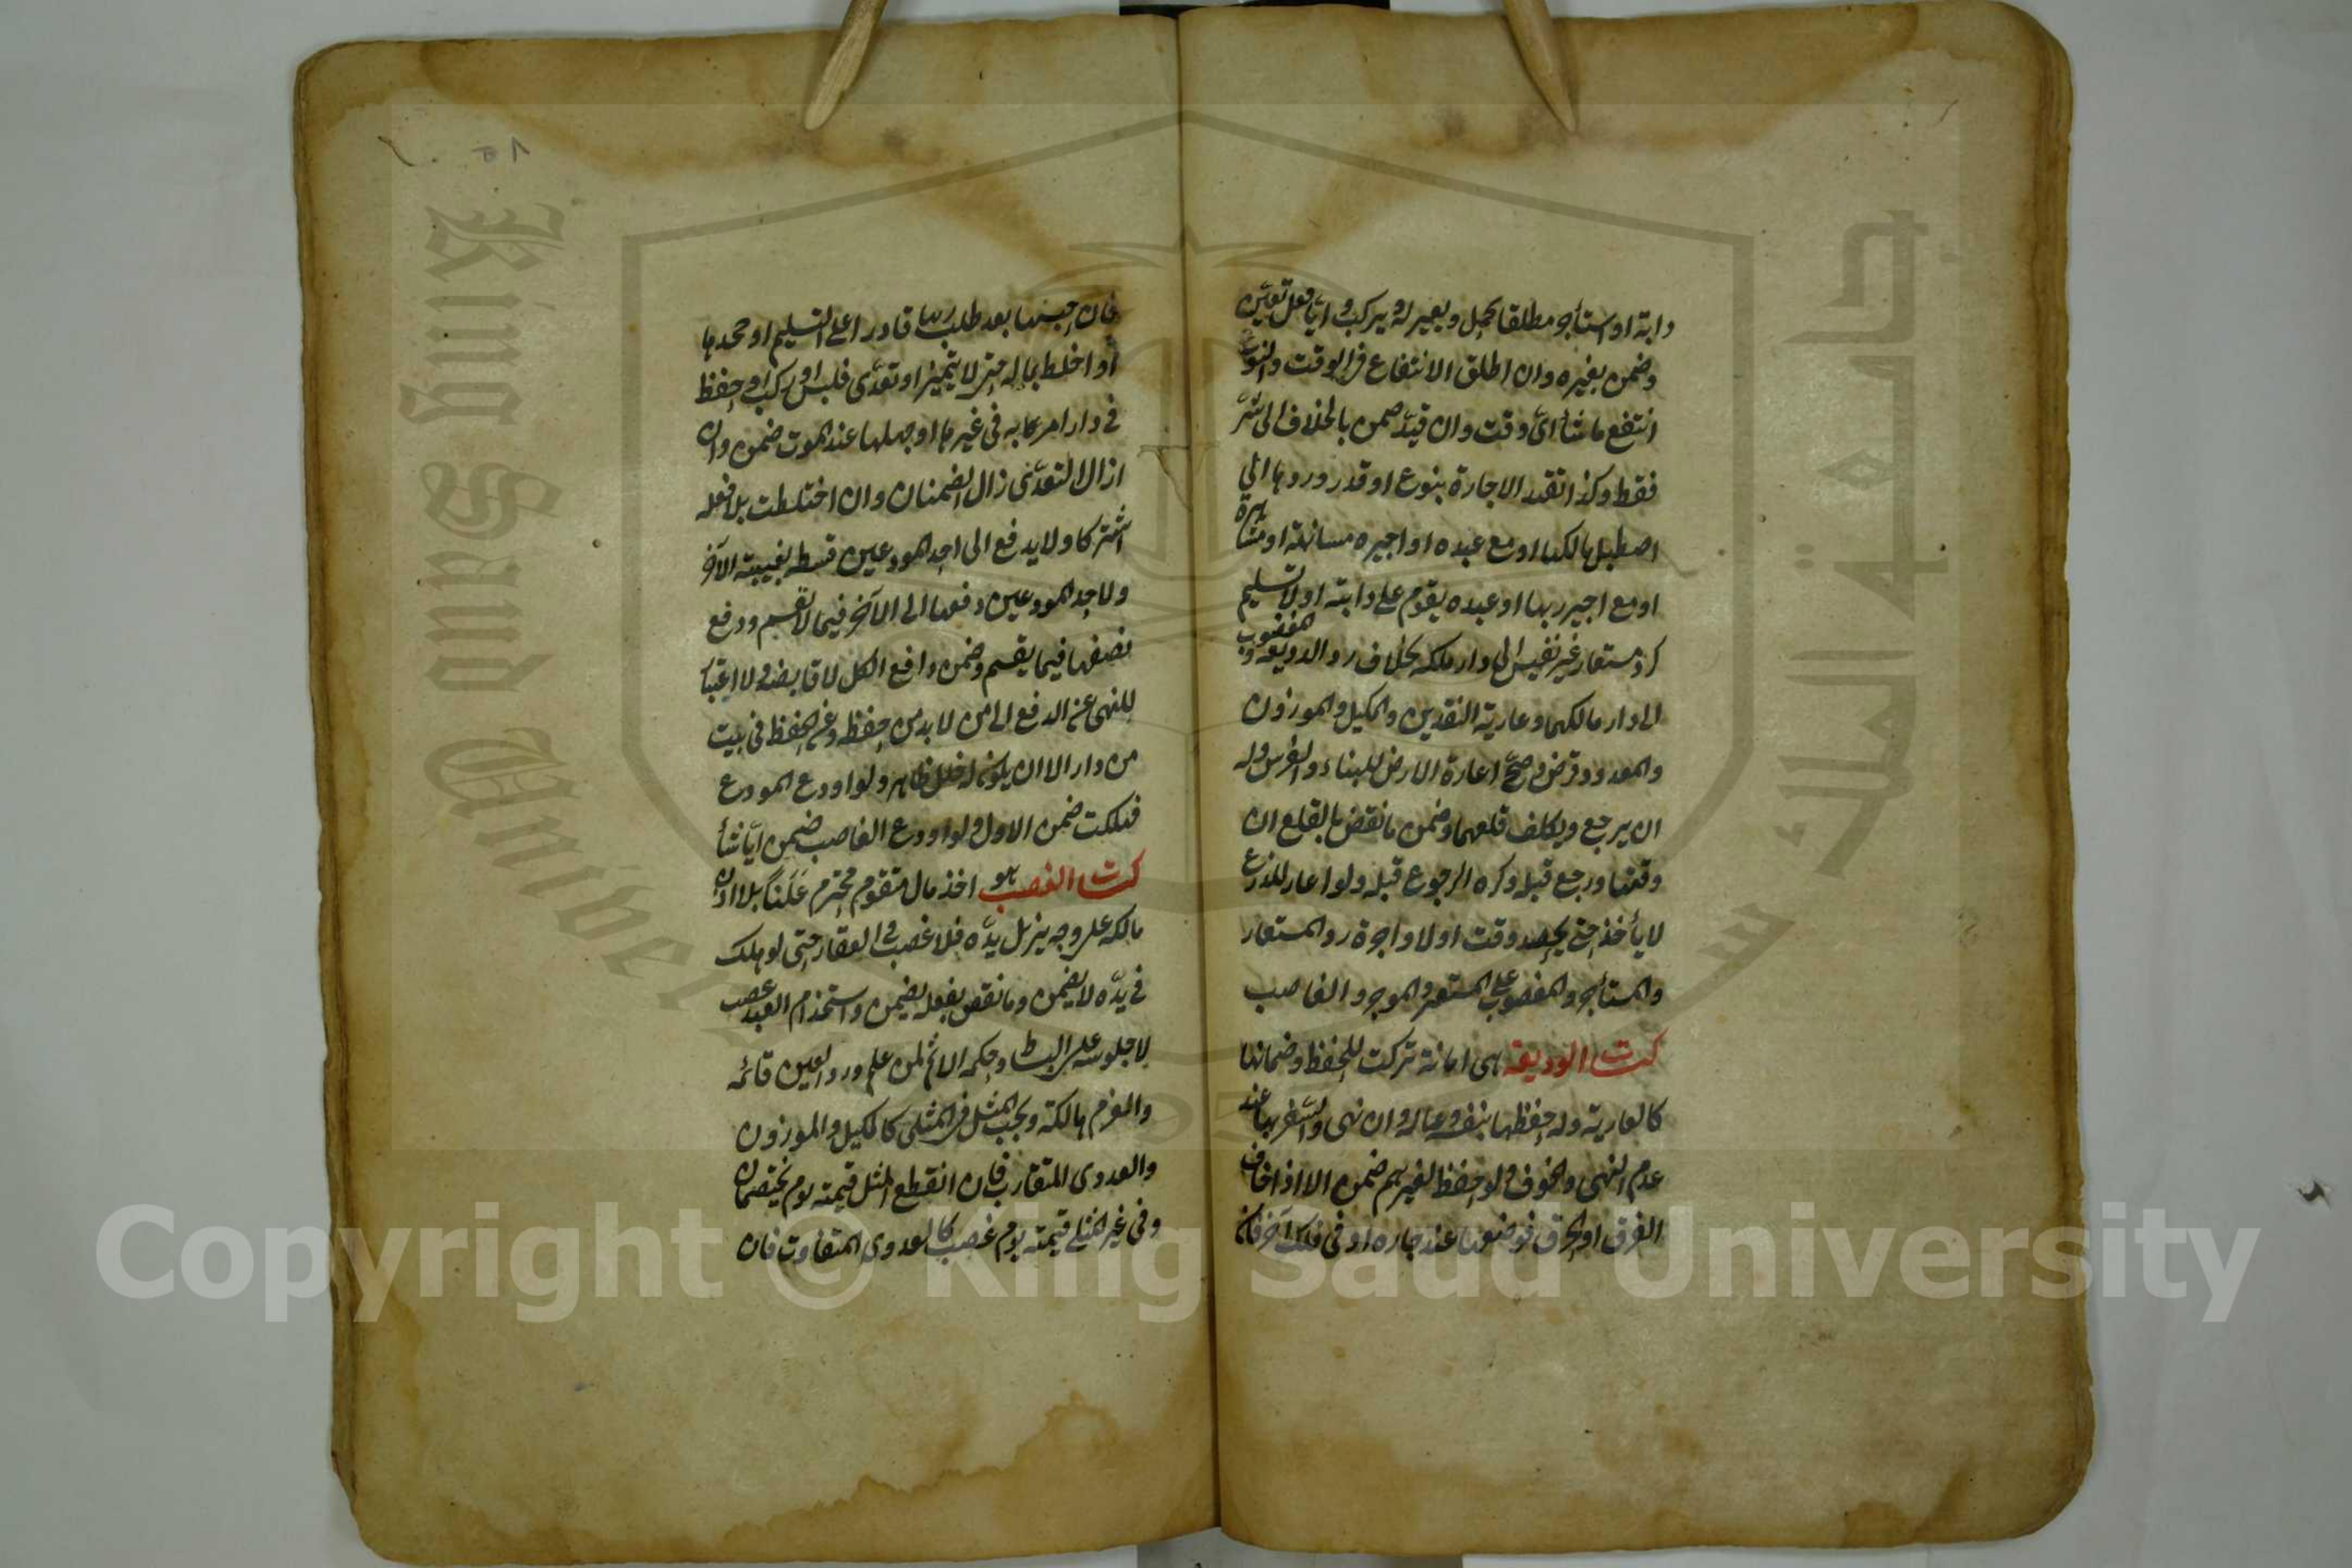 دابة او استأجر مطلقا يحمل ويعير له ويركب وايّا فعل تعيّن
وضمن بغيره وان اطلق الانتفاع في الوقت والنوع
انتفع ما شأ ائ وقت وان قيّد ضمن بالخلاف الى شر
فقط وكذا تقيد الاجارة بنوع او قدر وردها الى
اصطبل مالكها او مع عبده او اجيره مسانهة او مشاهرة
او مع اجير ربها او عبده يقوم على دابته او لا تسليم
كرد مستعار غير نفيس الى دار ملكه بخلاف رد الوديعة والمغصوب
الى دار مالكهما وعارية النقدين والمكيل والموزون
والمعدود قرض وصحّ اعارة الارض للبناء والغرس وله
ان يرجع ويكلف قلعهما وضمن ما نقض بالقلع ان
وقتها ورجع قبله وكره الرجوع قبله ولو اعار للزرع
لا يأخذ حتى يحصد وقت او لا واجرة رد المستعار
والمستأجر والمغصوب على المستعير والموجر والغاصب
كتاب الوديعة هى امانة تركت للحفظ وضمانها
كالعارية وله حفظها بنفسه وعياله وان نهى والسفر بها عند
عدم النهى والخوف ولو حفظ لغيرهم ضمن الا اذا خاف
الغرق او الحرق فوضعها عند جاره او فى فلك آخر فان
فان حبسها بعد طلب ربها قادرا على التسليم او جحدها
أو اخلط بماله حتى لا يتميز او تعدّى فلبس او ركب او حفظ
فى دار امر به فى غيرها او جهلها عند الموت ضمن وان
ازال التعدّى زال الضمنان وان اختلطت بلا فعله
اشتركا ولا يدفع الى احد المودعين قسطه بغيبة الآخر
ولاحد المودعين دفعها الى الآخر فيما لا يقسم ودفع
نصفها فيما يقسم وضمن دافع الكل لا قابضه ولا اعتبا
للنهى عن الدفع الى من لا بد من حفظه وعن الحفظ فى بيت
من دار الا ان يكون له خلل ظاهر ولو اودع المودع
فهلكت ضمن الاول ولو اودع الغاصب ضمن ايّا شأ
كتاب الغصب هو اخذ مال متقوم محترم علنا بلا اذن
مالكه على وجه يزيل يدّه فلا غصب فى العقار حتى لو هلك
فى يدّه لا يضمن وما نقص بفعله يضمن واستخدام العبد غصب
لا جلوسه على البساط وحكمه الاثم لمن علم ورد العين قائمه
والغرم هالكة ويجب المثل فى المثلى كالكيل والموزون
والعددى المتقارب فان انقطع المثل قيمته يوم يختصمان
وفى غير المثلى قيمته يوم غصب كالعددى المتفاوت فان
Copyright © King Saud University
King Saud University